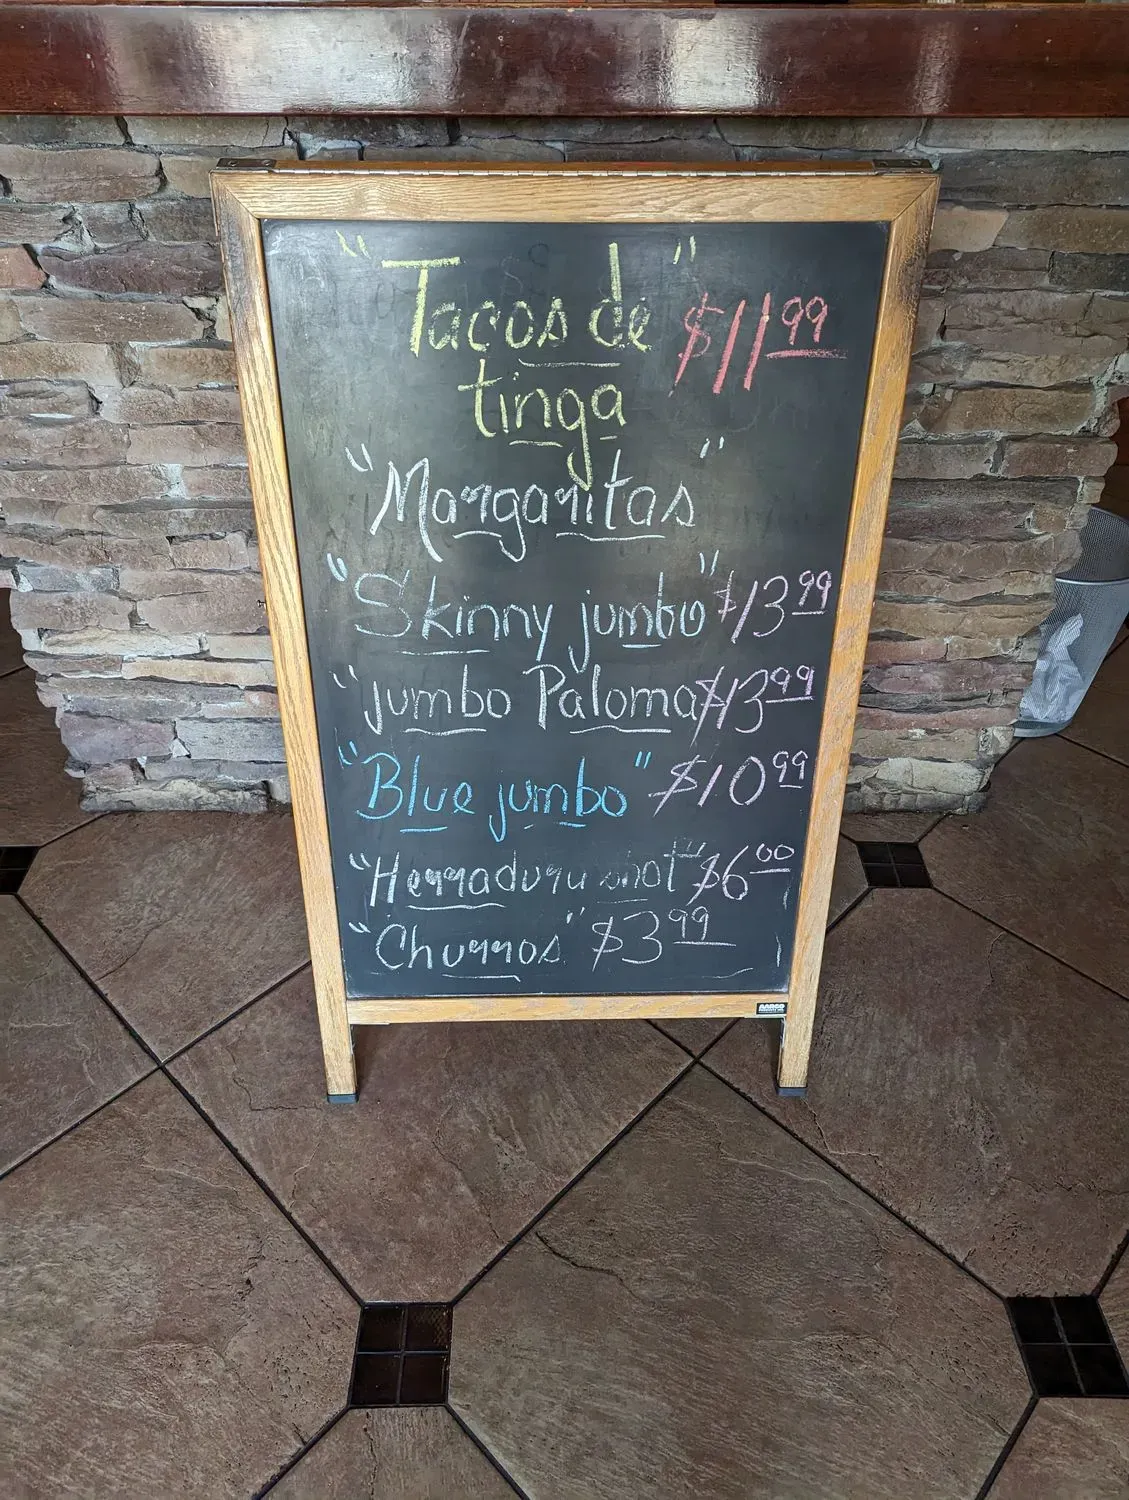 "Tacos de" $11.99
tinga
"Margaritas"
"Skinny jumbo" $13.99
"jumbo Paloma $13.99
"Blue jumbo" $10.99
"Herradura shot" $6.00
"Churros" $3.99